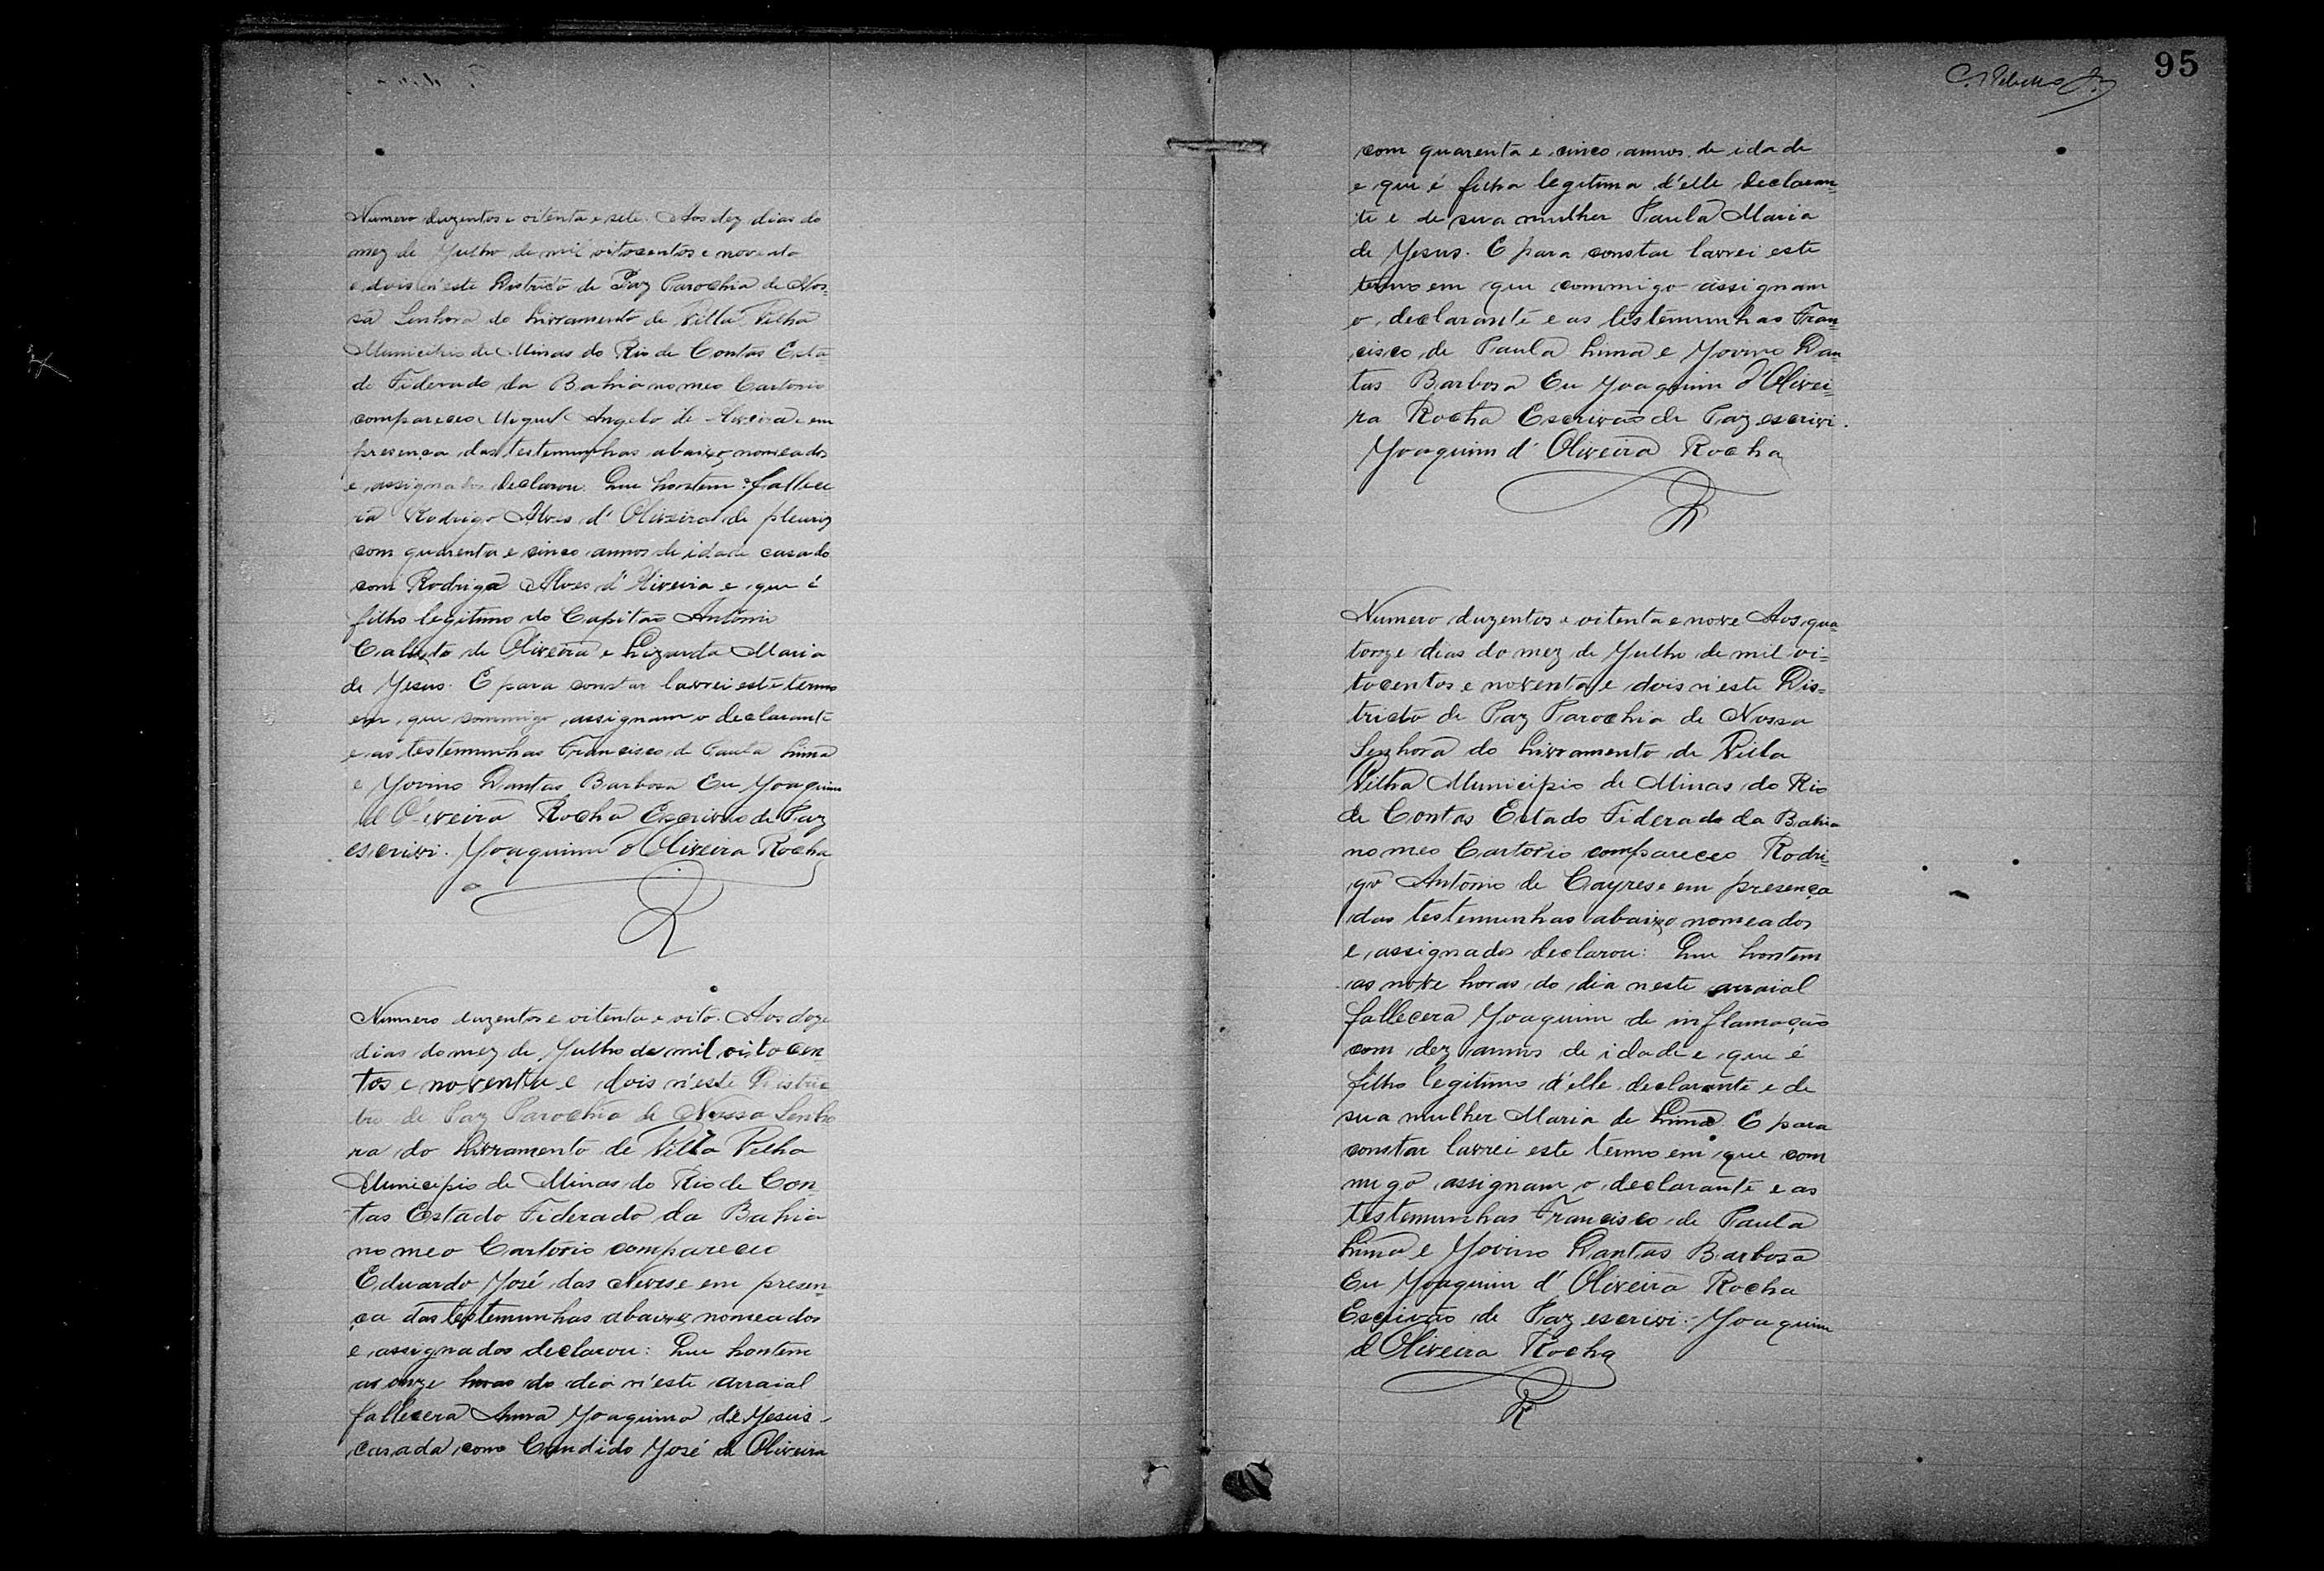 Numero duzentos e oitenta e sete. Aos dez dias do
mez de Julho de mil oitocentos e noventa
e dois n'este Districto de Paz Parochia de Nos-
sa Senhora do Livramento de Villa Velha
Municipio de Minas do Rio de Contas Esta
do Federado da Bahia no meo Cartorio
compareceo Miguel Angelo de Oliveira e em
presença das testemunhas abaixo nomeados
e assignados declarou: Que hontem fallece
ra Rodrigo Alves d'Oliveira de pleuriz
com quarenta e cinco annos de idade casado
com Rodriga Alves d'Oliveira e que é
filho legitimo do Capitão Antonio
Calixto de Oliveira e Maria
de Jesus. E para constar lavrei este termo
em que commigo assignam o declarante
e as testemunhas Francisco de Paula Lima
e Jovino Dantas Barbosa Eu Joaquim
d'Oliveira Rocha Escrivão de Paz
escrivi. Joaquim d'Oliveira Rocha
R
Numero duzentos e oitenta e oito. Aos doze
dias do mez de Julho de mil oitocen-
tos e noventa e dois n'este Distric
to de Paz Parochia de Nossa Senho
ra do Livramento de Villa Velha
Municipio de Minas do Rio de Con-
tas Estado Federado da Bahia
no meo Cartorio compareceo
Eduardo José das Neves e em presen-
ça das testemunhas abaixo nomeados
e assignados declarou: Que hontem
as onze horas do dia n'este arraial
fallecera Anna Joaquina de Jesus
casada com Candido José de Oliveira
95
com quarenta e cinco annos de idade
e que é filha legitima d'elle declaran-
te e de sua mulher Paula Maria
de Jesus. E para constar lavrei este
termo em que commigo assignam
o declarante e as testemunhas Fran-
cisco de Paula Lima e Jovino Dan-
tas Barbosa Eu Joaquim d'Olivei-
ra Rocha Escrivão de Paz escrivi.
Joaquim d'Oliveira Rocha
R
Numero duzentos e oitenta e nove Aos qua-
torze dias do mez de Julho de mil oi-
tocentos e noventa e dois n'este Dis-
tricto de Paz Parochia de Nossa
Senhora do Livramento de Villa
Velha Municipio de Minas do Rio
de Contas Estado Federado da Bahia
no meo Cartorio compareceo Rodri-
go Antonio de Cayres e em presença
das testemunhas abaixo nomeados
e assignados declarou: Que hontem
as nove horas do dia neste arraial
fallecera Joaquim de inflamação
com dez annos de idade e que é
filho legitimo d'elle declarante e de
sua mulher Maria de Lima E para
constar lavrei este termo em que com
migo assignam o declarante e as
testemunhas Francisco de Paula
Lima e Jovino Dantas Barbosa
Eu Joaquim d'Oliveira Rocha
Escrivão de Paz escrivi. Joaquim
d'Oliveira Rocha
R